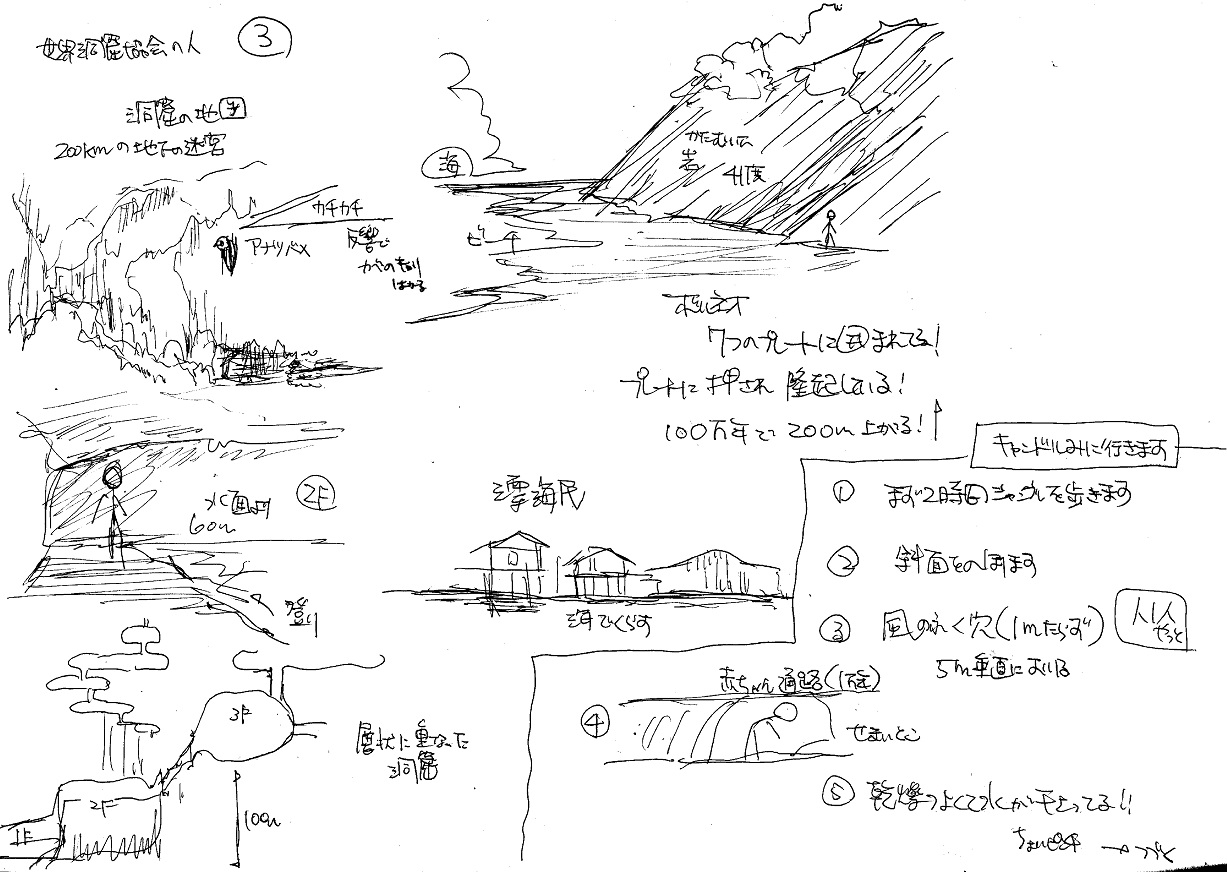 世界洞窟協会の人 ③
洞窟の地図
200kmの地下の迷宮
カチカチ
アナツバメ
反響で
カベのキョリ
はかる
海
ビーチ
かたむいた
岩 41度
ボルネオ
7つのプレートに囲まれてる!
プレートに押され 隆起している!
100万年で 200m上がる!
2F
水面より
60m
登り
漂海民
海でくらす
1F
2F
3F
100m
層状に重なった
洞窟
キャンドルみに行きます
① まず2時間ジャングルを歩きます
② 斜面をのぼります
③ 風のふく穴(1mたらず)
人1人
やっと
5m垂直におりる
④ 赤ちゃん通路
せまいとこ
⑤ 乾燥つよくて水が干上ってる!!
→つづく